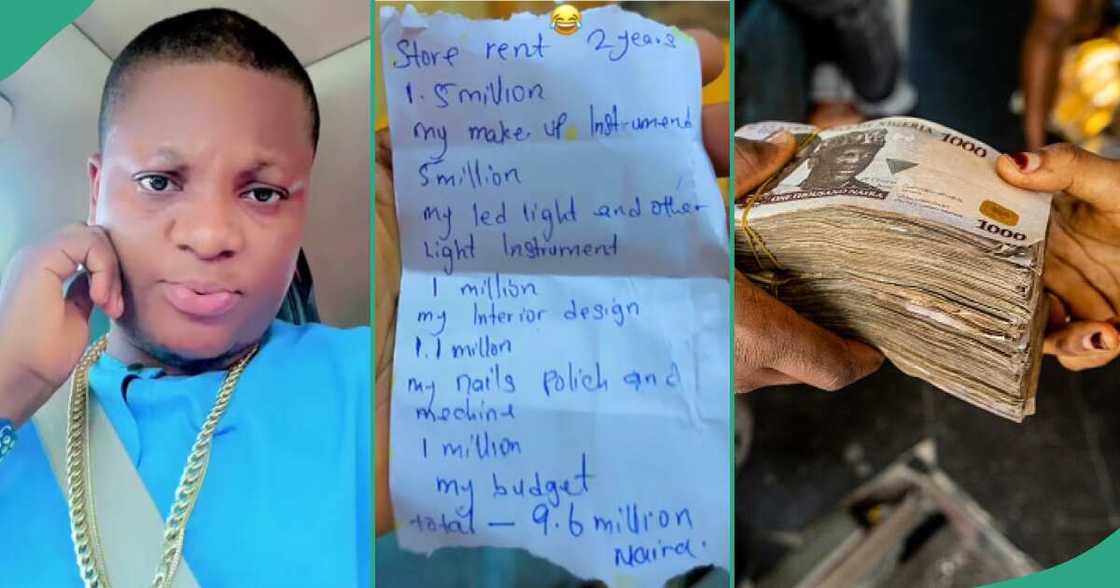 Store rent 2 years
1.5 million
my make up Instrument
5 million
my led light and other
Light Instrument
1 million
my Interior design
1.1 millon
my nails polich and
mechine
1 million
my budget
total — 9.6 million
Naira.
NIGERIA 1000
ONE THOUSAND NAIRA
1000